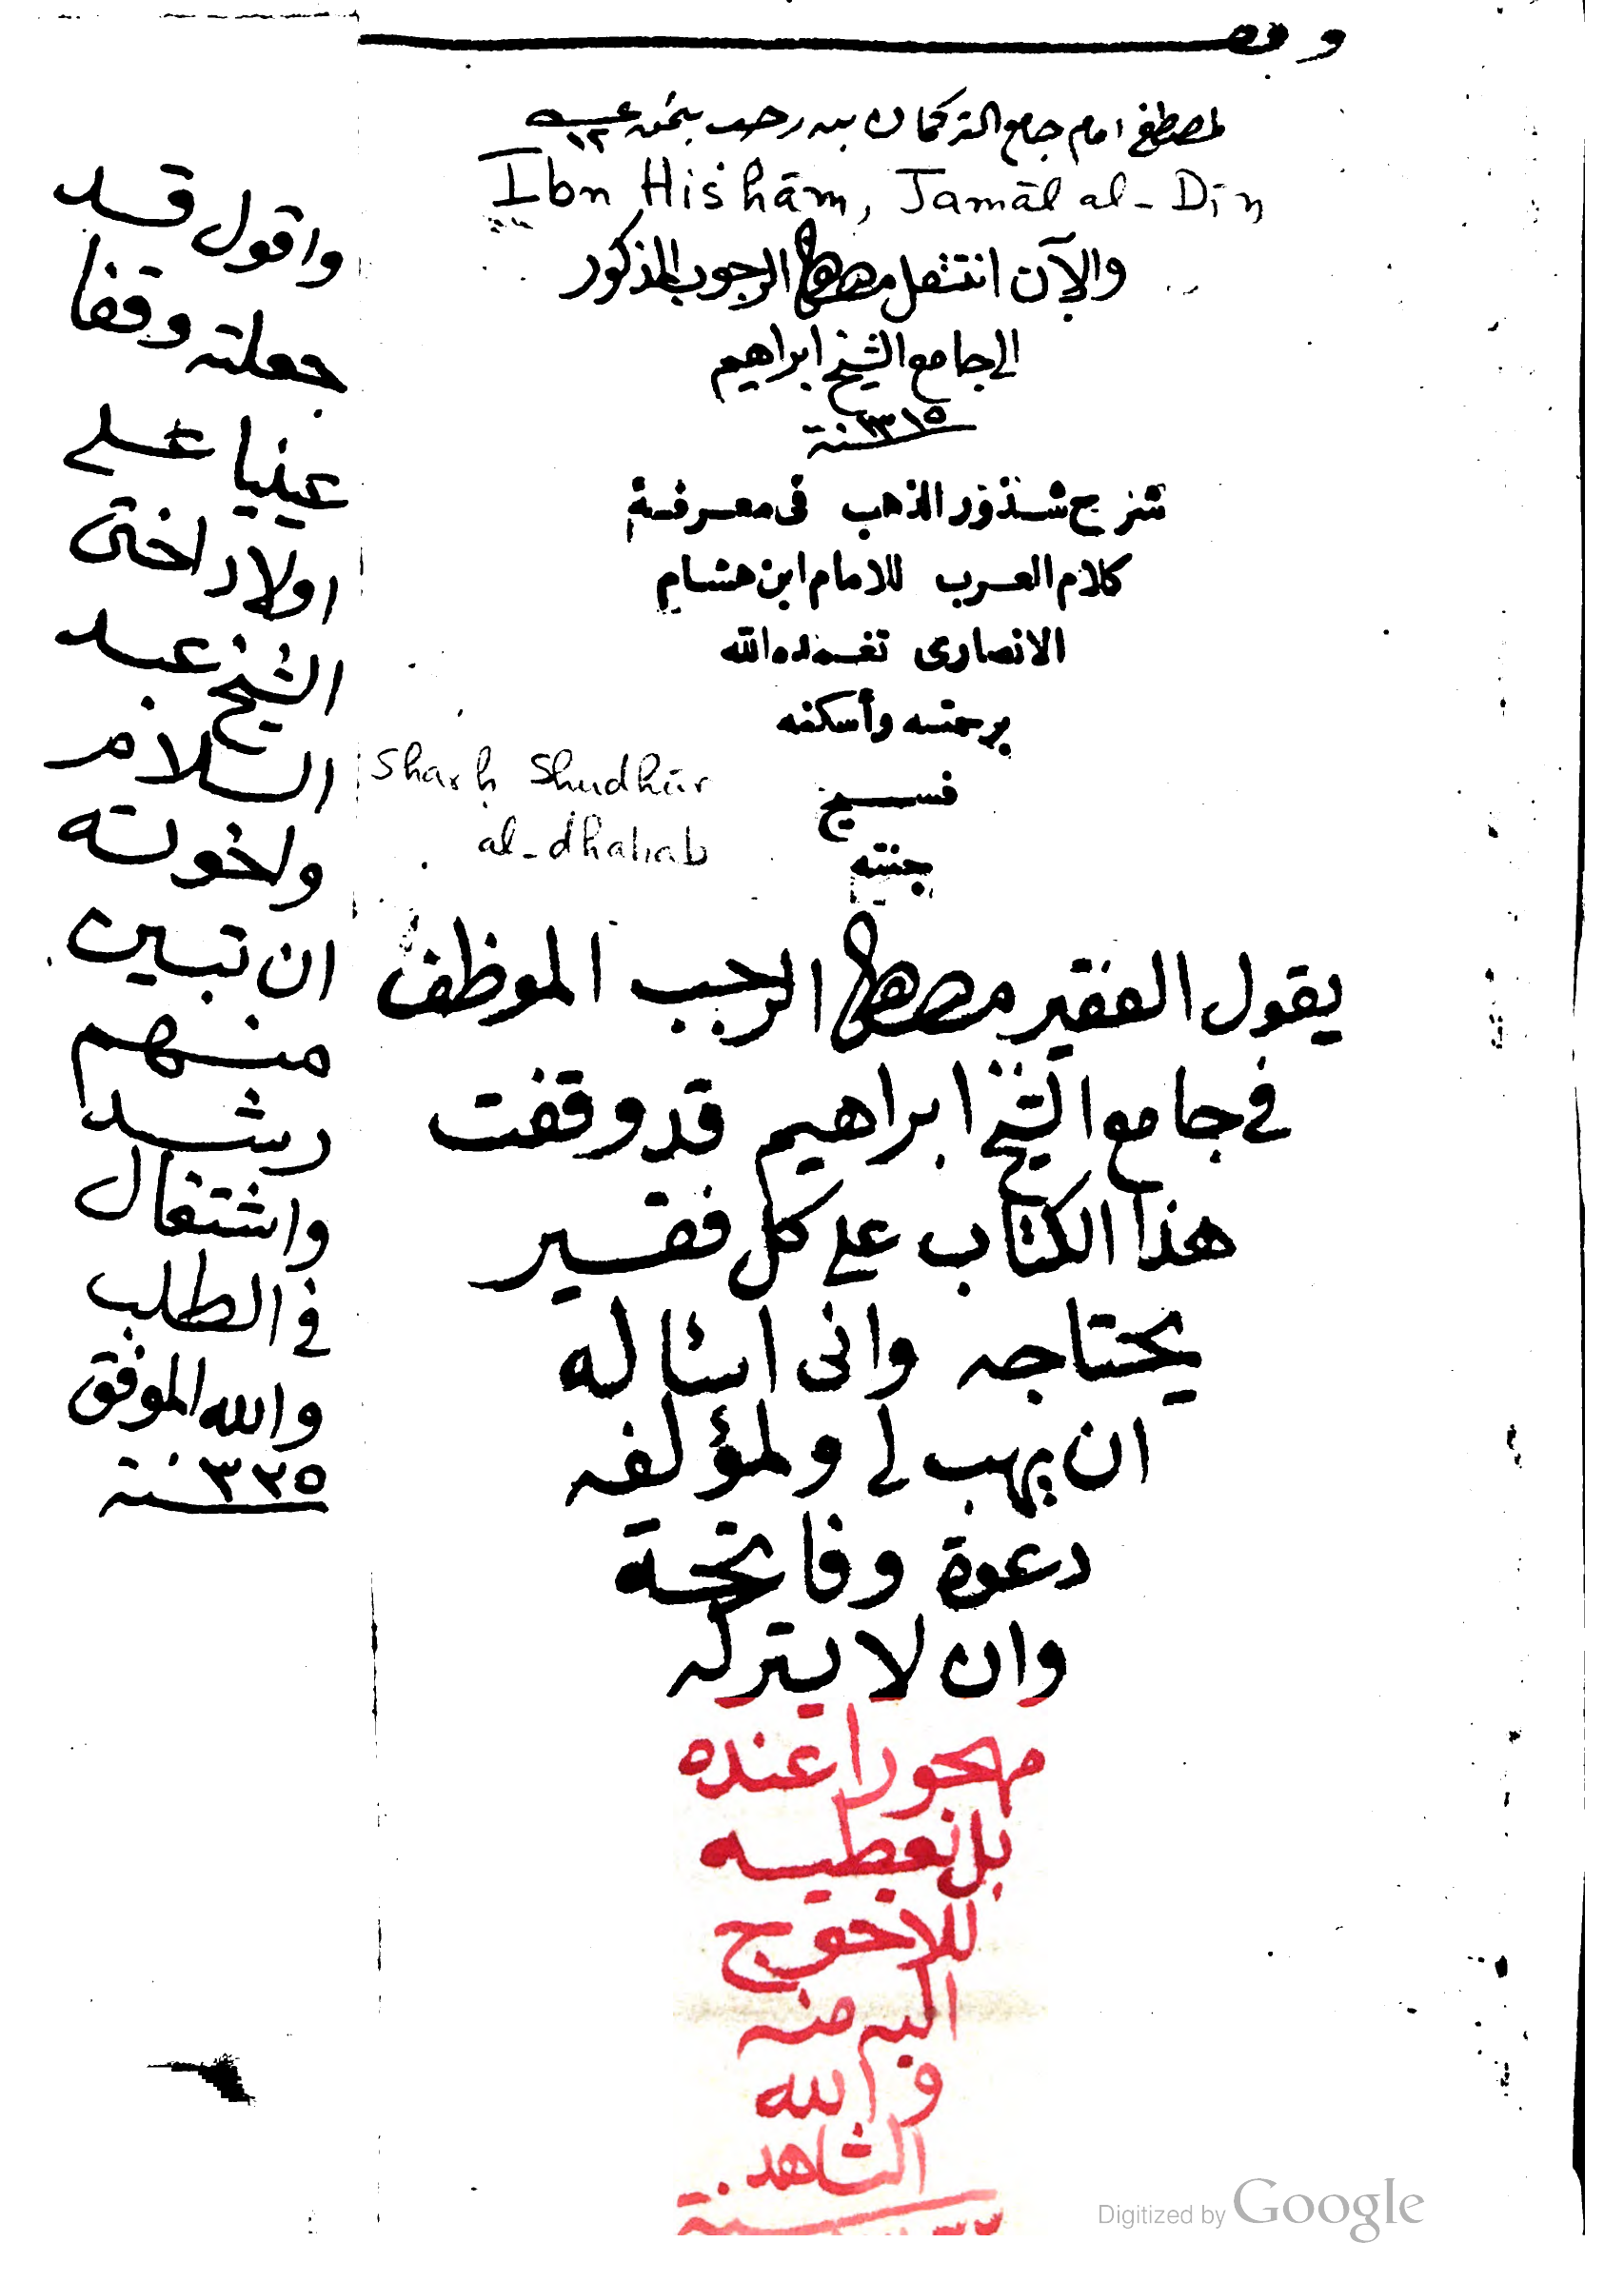 وقف
لمصطفى امام جامع التركمان بيد رجب
Ibn Hishām, Jamāl al-Dīn
والآن انتقل مصطفى الرجوب المذكور
الى جامع الشيخ ابراهيم
سنة ١٣١٥
شرح شذور الذهب فى معرفة
كلام العرب للامام ابن هشام
الانصارى تغمده الله
برحمته وأسكنه
فسيح
جنته
Sharḥ Shudhūr
al-dhahab
يقول الفقير مصطفى الرجب الموظف
في جامع الشيخ ابراهيم قد وقفت
هذا الكتاب على كل فقير
يحتاجه وانى اسئاله
ان يهب لي ولمؤلفه
دعوة وفاتحة
وان لا يتركه
مهجورا عنده
بل نعطيه
للاحوج
اليه منه
والله
الشاهد
سنة
واقول قد
جعلته وقفا
عينيا على
اولاد اختى
الشيخ عبد
السلام
واخوته
ان تبين
منهم
رشد
واشتغال
في الطلب
والله الموفق
سنة ٣٣٥
Digitized by Google